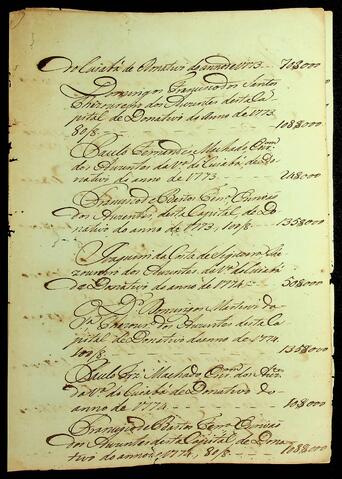 do Cuiabá de Donativo do anno de 1773 -- 70$000
Domingos Francisco dos Santos
Thezoureiro dos Auzentes desta Ca
pital de Donativo do anno de 1773
80/8 -- 108$000
Paulo Fernandes Machado
dos Auzentes da Vª do Cuiabá, de Do
nativo do anno de 1773 -- 24$000
Francisco de Bastos Ferrª Escrivão
dos Auzentes, desta Capital de Do
nativo do anno de 1773, 100/8 -- 135$000
Joaquim da Costa de Siqueira The
zoureiro dos Auzentes da Vª do Cuiabá
de Donativo do anno de 1774 -- 50$000
Domingos
Thezourº dos Auzentes desta Ca
pital de Donativo do anno de 1774
100/8 -- 135$000
Paulo Machado
da Vª do Cuiabá de Donativo do
anno de 1774 -- 10$000
Francisco de Bastos Ferrª Escrivão
dos Auzentes desta Capital, de Dona
tivo do anno de 1774, 80/8 -- 108$000